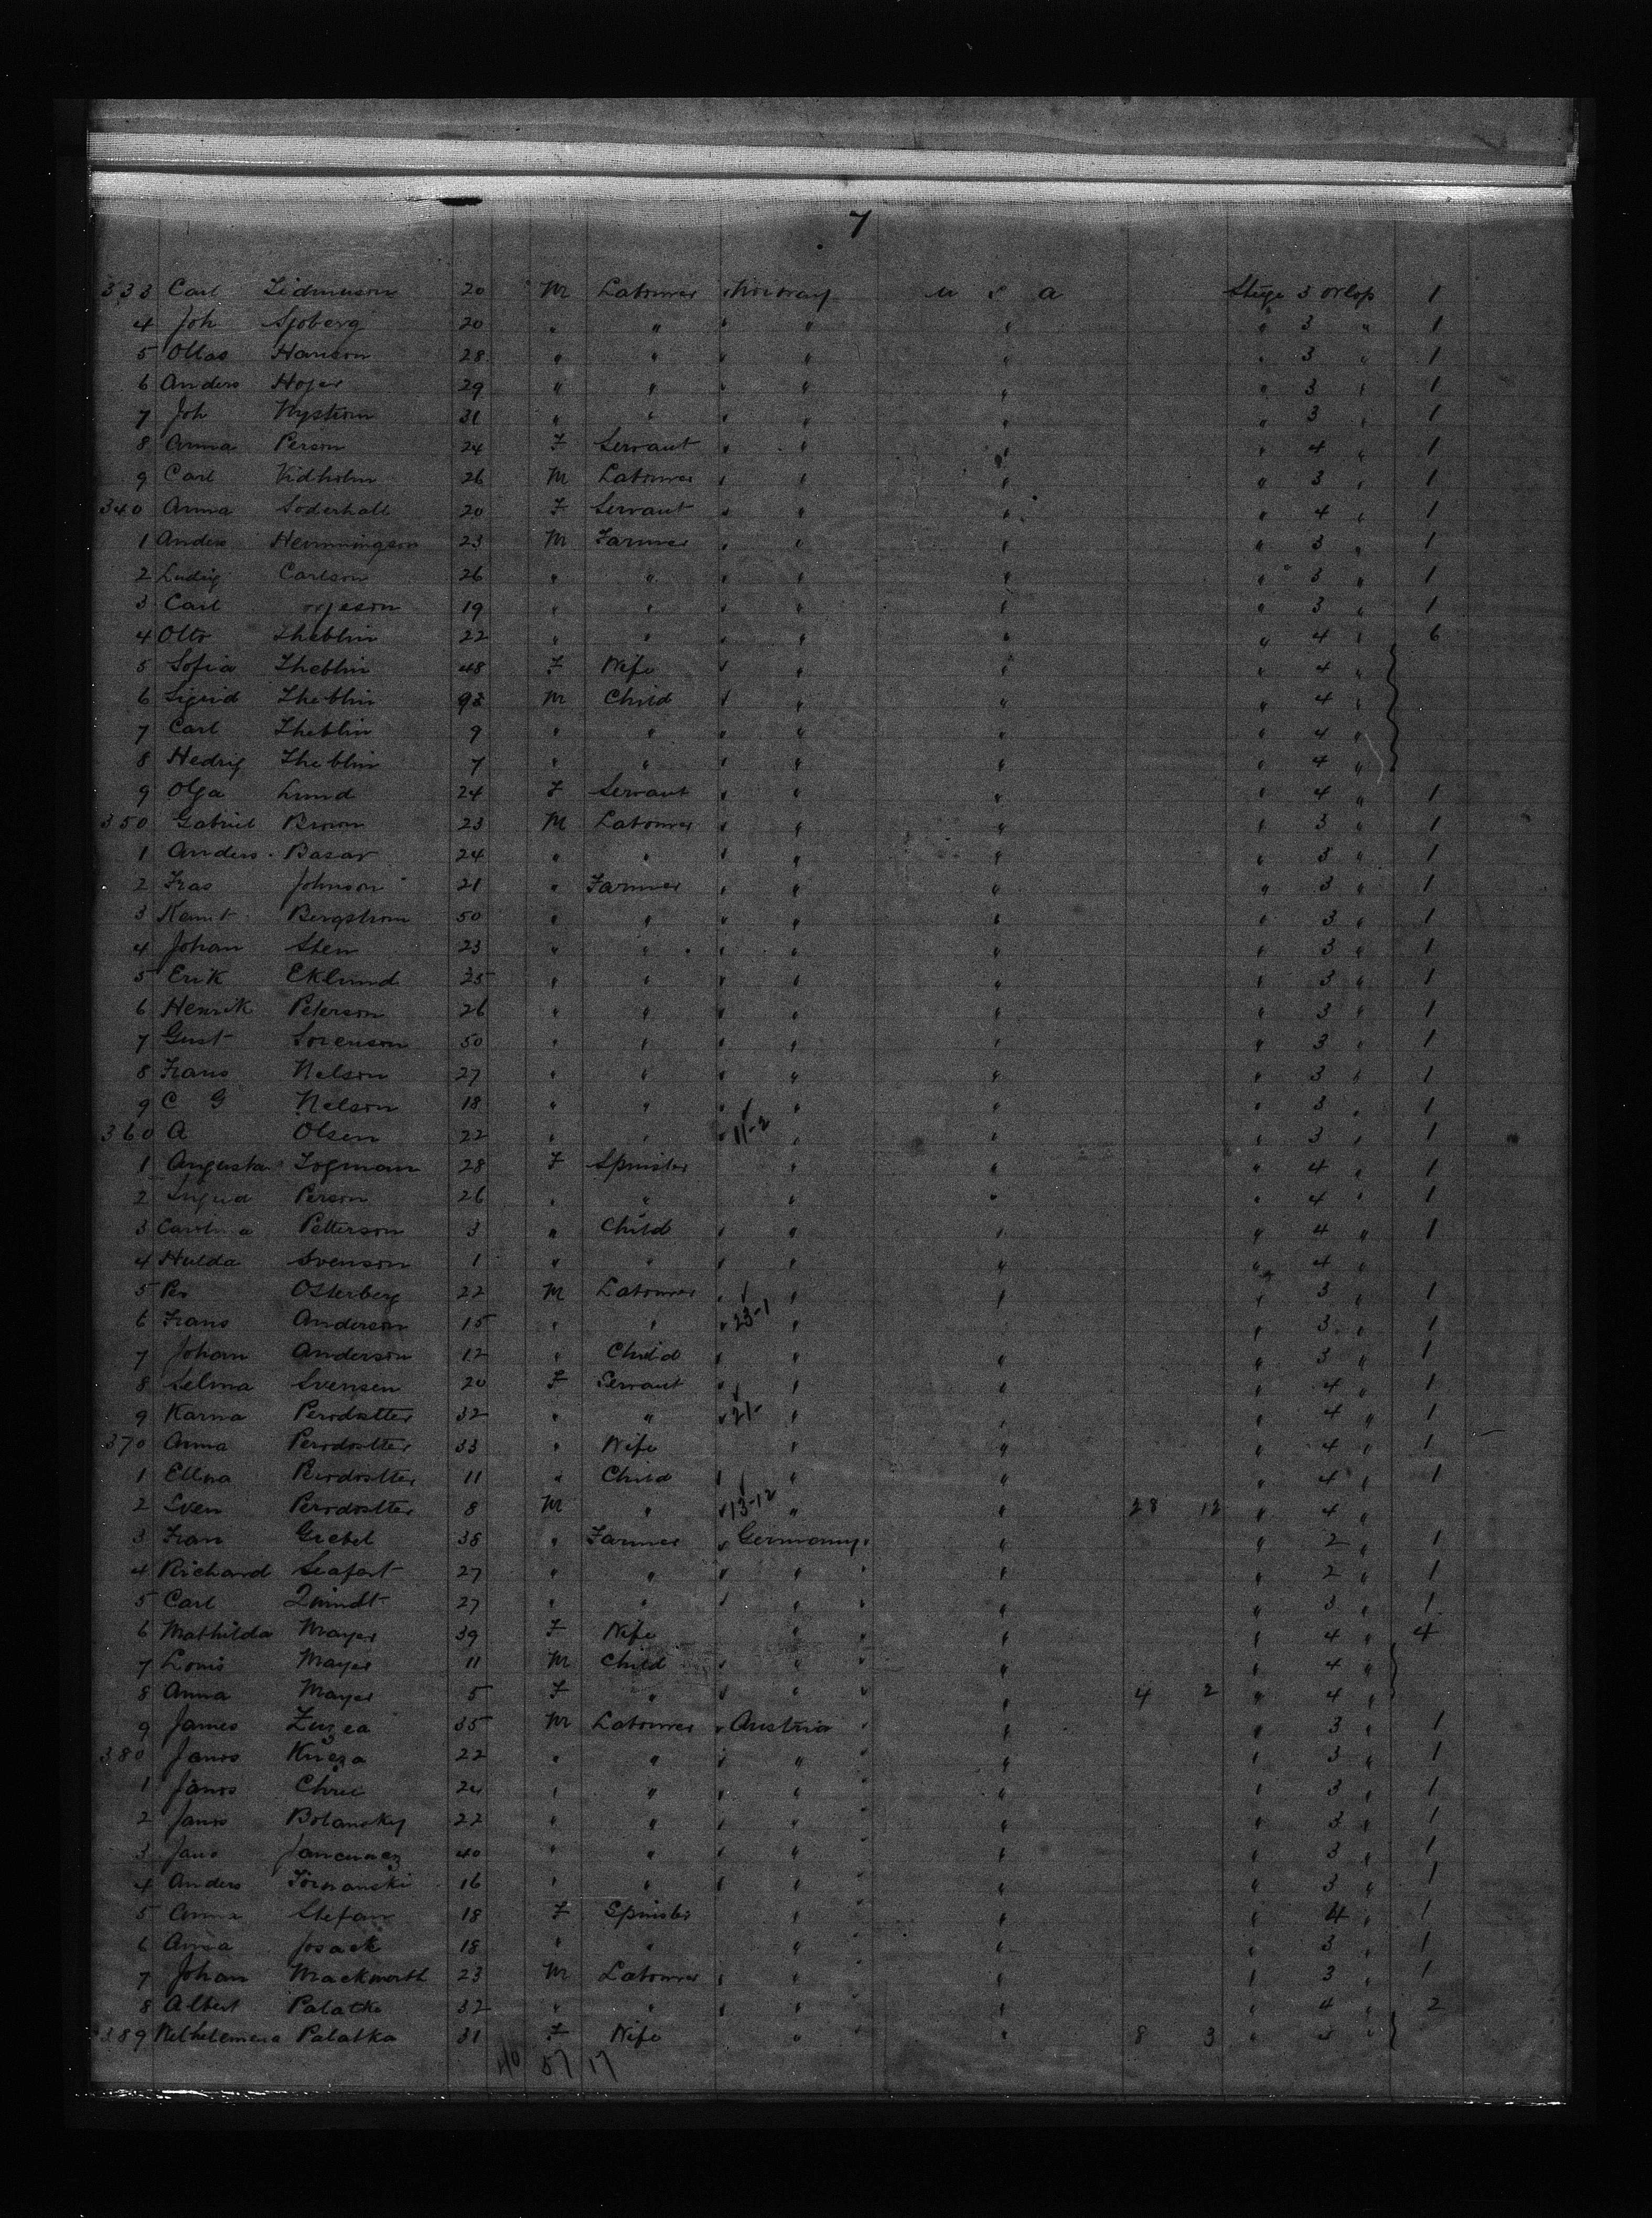 7
333 Carl 20 M Labourer Norway U S A Stege 3 orlop 1
4 Joh Sjoberg 20 " " " " " " 3 " 1
5 Ollas Hanson 28 " " " " " " 3 " 1
6 Anders Hojer 29 " " " " " " 3 " 1
7 Joh Nystrom 31 " " " " " " 3 " 1
8 Anna Person 24 F Servant " " " " 4 " 1
9 Carl Vidholm 26 M Labourer " " " " 3 " 1
340 Anna Soderhall 20 F Servant " " " " 4 " 1
1 Anders Henningson 23 M Farmer " " " " 3 " 1
2 Ludvig Carlson 26 " " " " " " 3 " 1
3 Carl 19 " " " " " " 3 " 1
4 Otto Theblin 22 " " " " " " 4 " 6
5 Sofia Theblin 48 F Wife " " " " 4 "
6 Sigrid Theblin M Child " " " " 4 "
7 Carl Theblin 9 " " " " " " 4 "
8 Hedvig Theblin 7 " " " " " " 4 "
9 Olga Lund 24 F Servant " " " " 4 " 1
350 Gabriel Brown 23 M Labourer " " " " 3 " 1
1 Anders Basar 24 " " " " " " 3 " 1
2 Johnson 21 " Farmer " " " " 3 " 1
3 Bergstrom 50 " " " " " " 3 " 1
4 Johan Sten 23 " " " " " " 3 " 1
5 Erik Eklund 25 " " " " " " 3 " 1
6 Henrik Peterson 26 " " " " " " 3 " 1
7 Gust Sorenson 50 " " " " " " 3 " 1
8 Frans Nelson 27 " " " " " " 3 " 1
9 C G Nelson 18 " " " " " " 3 " 1
360 A Olsen 22 " " " 11-2 " " " 3 " 1
1 Augusta Fogman 28 F Spinster " " " 4 " 1
2 Person 26 " " " " " 4 " 1
3 Carolina Petterson 3 " Child " " " " 4 " 1
4 Hulda Svenson 1 " " " " " " 4 "
5 Per Osterberg 22 M Labourer " " " " 3 " 1
6 Frans Anderson 15 " " " 23-1 " " " 3 " 1
7 Johan Anderson 12 " Child " " " " 3 " 1
8 Selma Svensen 20 F Servant " " " " 4 " 1
9 Karna Persdotter 32 " " " 21- " " " 4 " 1
370 Anna Persdotter 33 " Wife " " " 4 " 1
1 Ellna Persdotter 11 " Child " " " " 4 " 1
2 Sven Persdotter 8 M " " 13-12 " " 28 12 " 4 "
3 Fran Grebel 38 " Farmer " Germany " " 2 " 1
4 Richard Seafert 27 " " " " " " 2 " 1
5 Carl Quindt 27 " " " " " " 3 " 1
6 Mathilda Mayer 39 F Wife " " " 4 " 4
7 Louis Mayer 11 M Child " " " " 4 "
8 Anna Mayer 5 F " " " " 4 2 " 4 "
9 James Zuzea 35 M Labourer " Austria " " 3 " 1
380 Janos Kneza 22 " " " " " " 3 " 1
1 Janos 24 " " " " " " 3 " 1
2 Janos Bolansky 22 " " " " " " 3 " 1
3 Jano 40 " " " " " " 3 " 1
4 Anders 16 " " " " " " 3 " 1
5 Anna Stefan 18 F Spinster " " " 4 " 1
6 Anna Josack 18 " " " " " 3 " 1
7 Johan Mackworth 23 M Labourer " " " " 3 " 1
8 Albert Palatka 32 " " " " " " 4 " 2
389 Palatka 31 F Wife " " 8 3 " 4 "
40 57 17